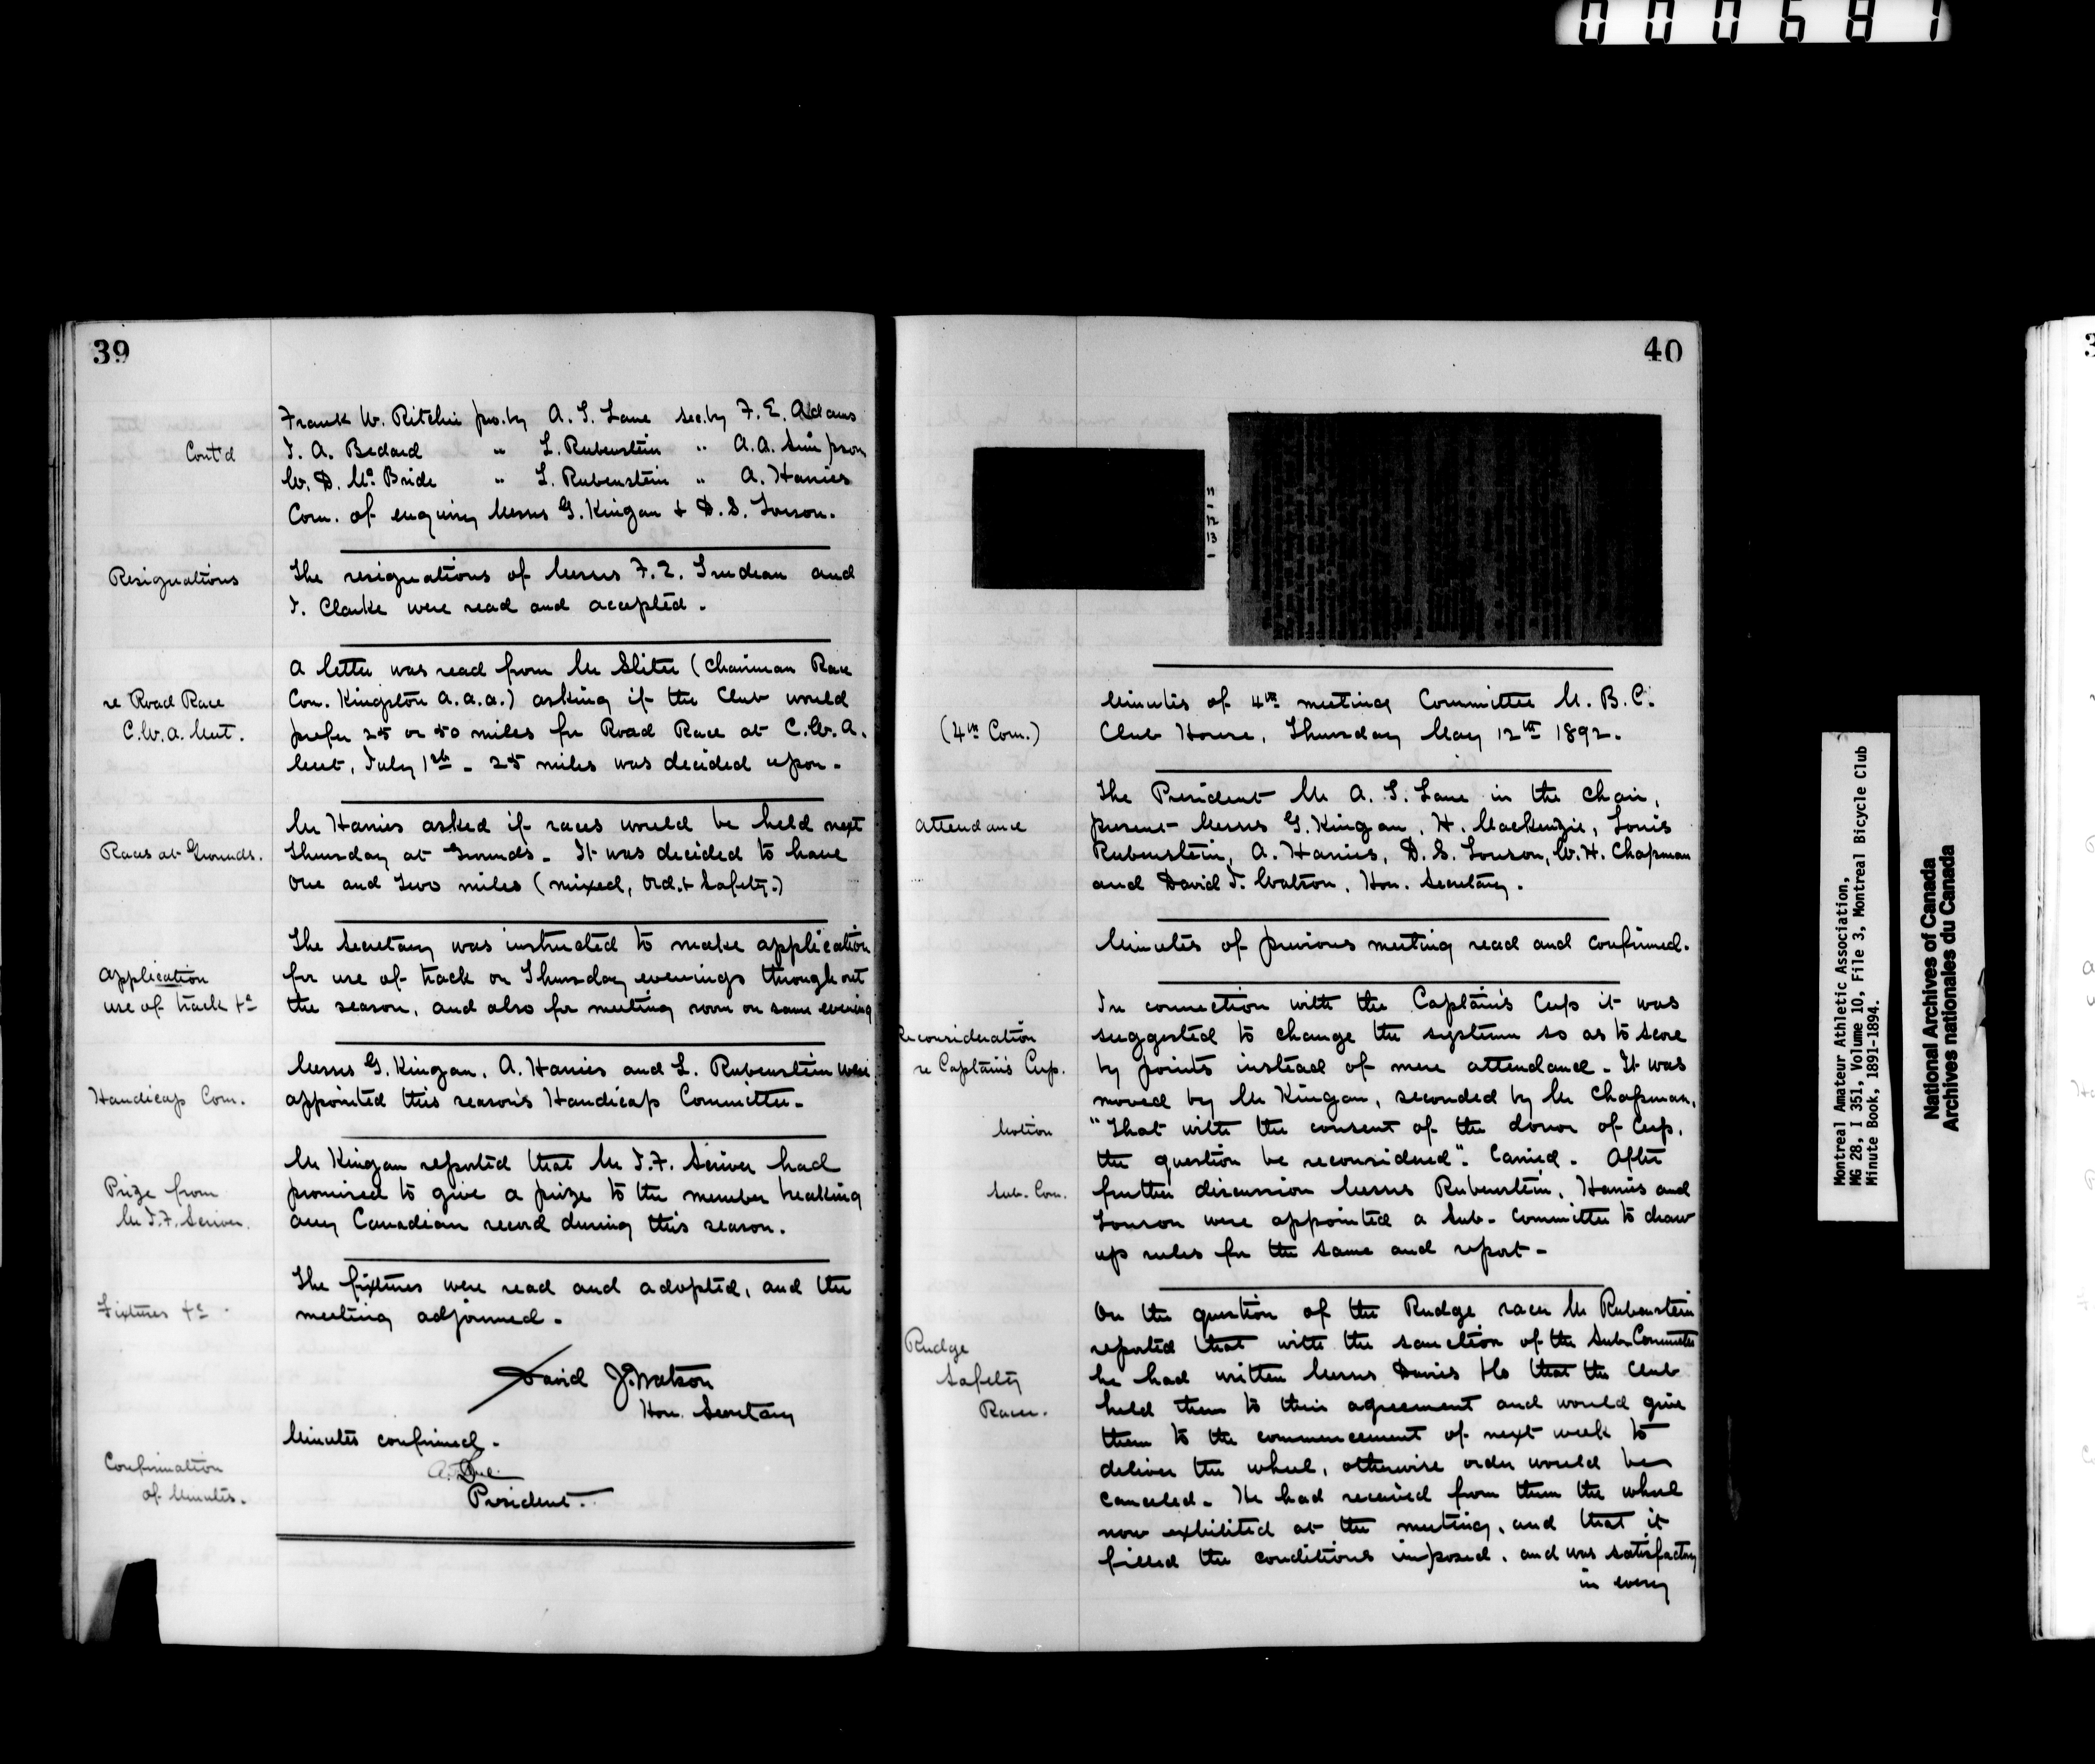 000681
39
Frank W. Ritchie pro. by A. T. Lane sec. by F. E. Adams
Cont'd
J. A. Bedard " L. Rubenstein " A. A. Simpson
W. D. McBride " L. Rubenstein " A. Harries
Com. of enquiry Messrs G. Kingan & D. S. Louson.
Resignations
The resignations of Messrs F. Z. Trudeau and
J. Clarke were read and accepted.
re Road Race
C.W.A. Meet.
A letter was read from Mr Sliter (Chairman Race
Com. Kingston A.A.A.) asking if the Club would
prefer 25 or 50 miles for Road Race at C.W.A.
Meet, July 1st - 25 miles was decided upon -
Races at Grounds.
Mr Harries asked if races would be held next
Thursday at Grounds - It was decided to have
One and Two miles (mixed, Ord. & Safety.)
Application
use of track &c
The Secretary was instructed to make application
for use of track on Thursday evenings throughout
the season, and also for meeting room on same evening
Handicap Com.
Messrs G. Kingan, A. Harries and L. Rubenstein were
appointed this season's Handicap Committee -
Prize from
Mr J.F. Scriver.
Mr Kingan reported that Mr J.F. Scriver had
promised to give a prize to the member breaking
any Canadian record during this season.
Fixtures &c -
The fixtures were read and adopted, and the
meeting adjourned -
David J. Watson
Hon. Secretary
Minutes confirmed -
Confirmation
of Minutes.
A. T. Lane
President.
40
11
12
13
(4th Com.)
Minutes of 4th meeting Committee M. B. C.
Club House, Thursday May 12th 1892.
Attendance
The President Mr A. T. Lane in the chair,
present Messrs G. Kingan, H. Mackenzie, Louis
Rubenstein, A. Harries, D. S. Louson, W. H. Chapman
and David J. Watson, Hon. Secretary.
Minutes of previous meeting read and confirmed.
Reconsideration
re Captain's Cup.
In connection with the Captain's Cup it was
suggested to change the system so as to score
by points instead of mere attendance - It was
moved by Mr Kingan, seconded by Mr Chapman,
Motion
"That with the consent of the donor of Cup,
the question be reconsidered". Carried - After
Sub. Com.
further discussion Messrs Rubenstein, Harries and
Louson were appointed a Sub-Committee to draw
up rules for the same and report -
Rudge
Safety
Racer.
On the question of the Rudge racer Mr Rubenstein
reported that with the sanction of the Sub Committee
he had written Messrs Davies &Co that the Club
held them to their agreement and would give
them to the commencement of next week to
deliver the wheel, otherwise order would be
canceled - He had received from them the wheel
now exhibited at the meeting, and that it
filled the conditions imposed, and was satisfactory
in every
Montreal Amateur Athletic Association,
MG 28, I 351, Volume 10, File 3, Montreal Bicycle Club
Minute Book, 1891-1894.
National Archives of Canada
Archives nationales du Canada